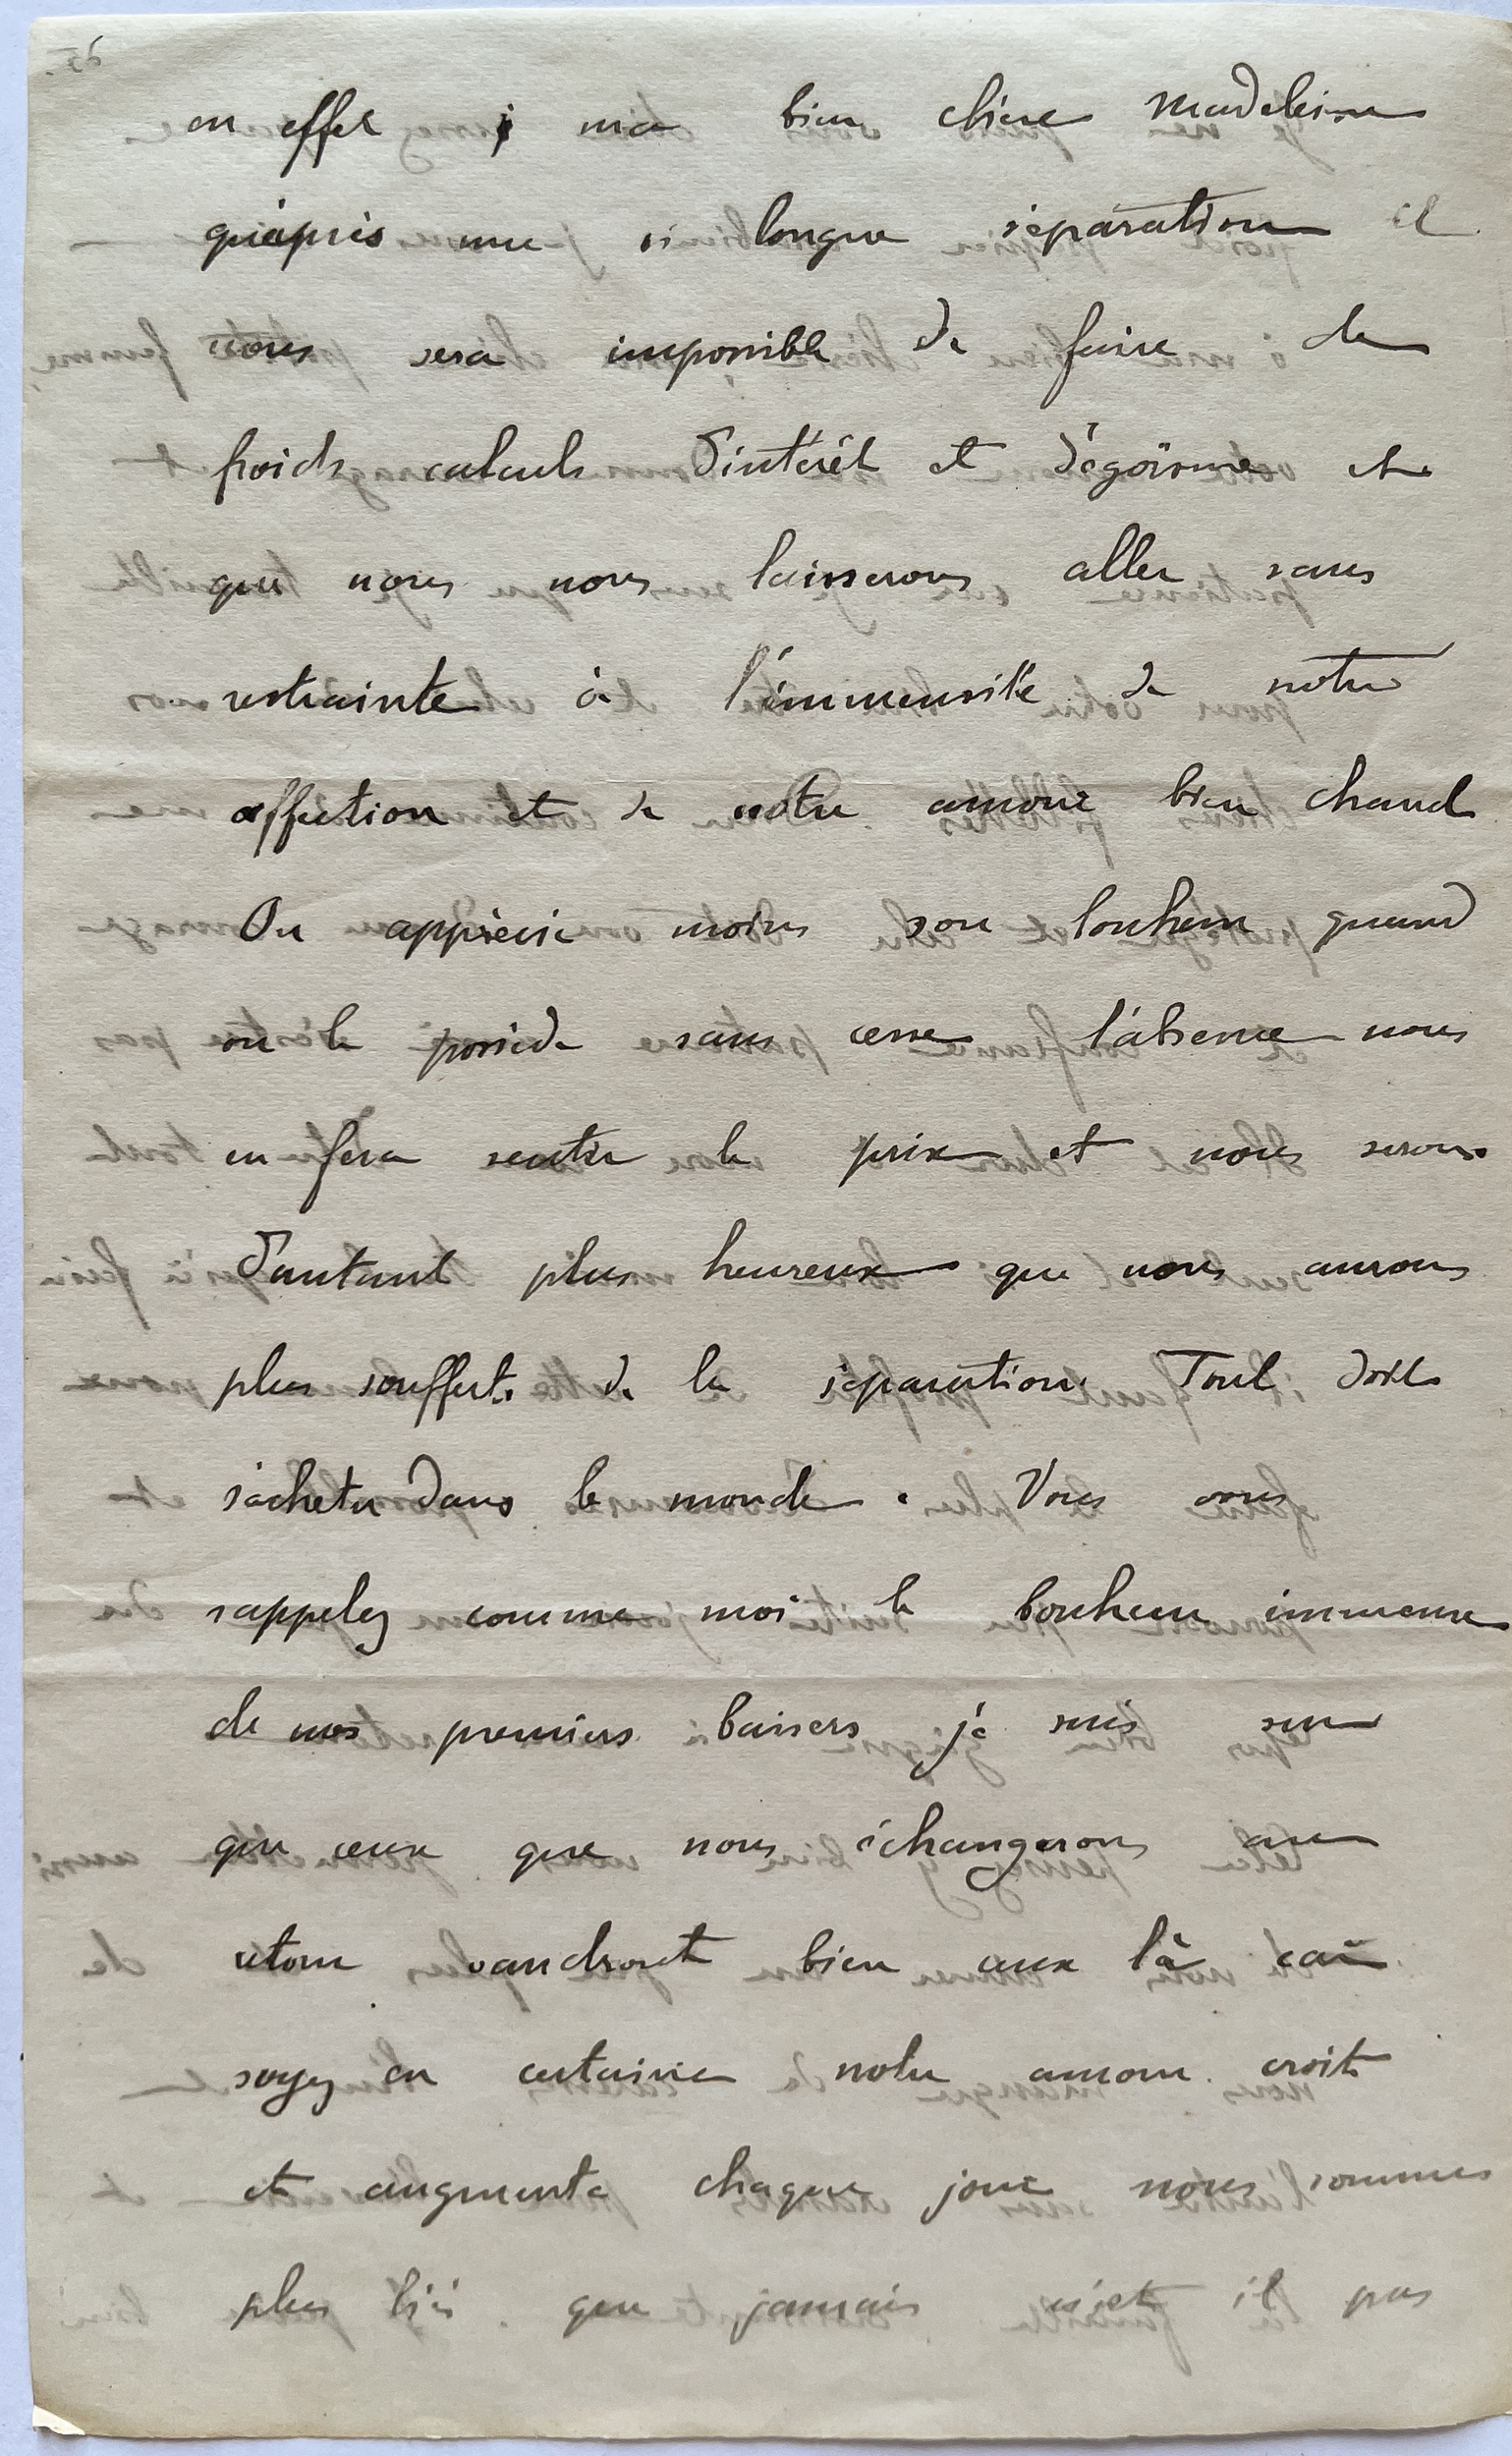 en effet ma bien chère Madeleine
qu'après une si longue séparation il
nous sera impossible de faire de
froids calculs d'intérêt et d'égoïsme et
que nous nous laisserons aller sans
restrainte à l'immensité de notre
affection et de notre amour bien chaud
On apprécie moins son bonheur quand
on le possède sans cesse l'absence nous
en fera sentir le prix et nous serons
d'autant plus heureux que nous aurons
plus souffert de la séparation. Tout doit
s'acheter dans le monde. Vous vous
rappelez comme moi le bonheur immense
de nos premiers baisers je suis sur
que ceux que nous échangerons au
retour vaudront bien ceux là car
soyez en certaine notre amour croit
et augmente chaque jour nous sommes
plus liés que jamais n'est il pas